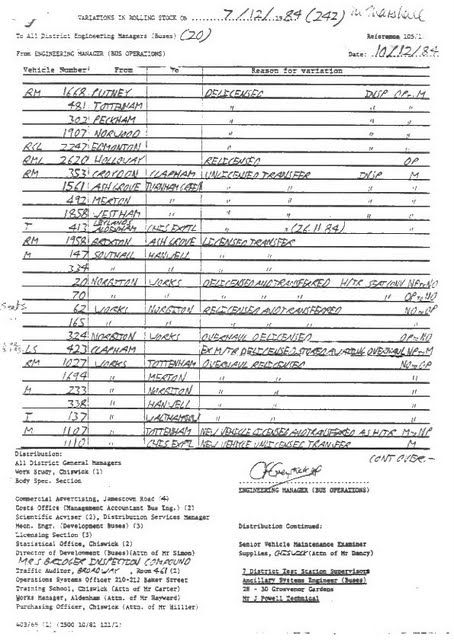 VARIATIONS IN ROLLING STOCK ON 7/12/1984 (242) Mr Marshall
To All District Engineering Managers (Buses) (20) Reference 105/1
From ENGINEERING MANAGER (BUS OPERATIONS) Date: 10/12/84
Vehicle Number From To Reason for variation
RM 1668 PUTNEY DELICENSED INSP OP-M
481 TOTTENHAM " "
302 PECKHAM " "
1907 NORWOOD " "
RCL 2247 EDMONTON " "
RML 2620 HOLLOWAY RELICENSED OP
RM 353 CROYDON CLAPHAM UNLICENSED TRANSFER INSP M
1561 ASH GROVE TURNHAM GREEN " " "
492 MERTON " " " "
1858 WEST HAM " " " "
T 413 LEYLANDS ALDENHAM CHIS EXPTL " " (26.11.84)
RM 1958 BRIXTON ASH GROVE LICENSED TRANSFER
M 147 SOUTHALL HANWELL "
334 " " "
20 NORBITON WORKS DELICENSED AND TRANSFERRED H/TR SEAT CONV NP to NO
70 " " " " OP to NO
62 WORKS NORBITON RELICENSED AND TRANSFERRED NO to OP
165 " " " "
324 NORBITON WORKS OVERHAUL DELICENSED OP to NO
LS 423 CLAPHAM EX H/TR DELICENSED STORED AWAITING OVERHAUL NP to M
RM 1027 WORKS TOTTENHAM OVERHAUL RELICENSED NO to OP
1694 " MERTON " "
M 233 " NORBITON " "
338 " HANWELL " "
T 137 " WALTHAMSTOW " "
M 1107 TOTTENHAM NEW VEHICLE LICENSED AND TRANSFERRED AS H/TR M to NP
1110 CHIS EXPTL NEW VEHICLE UNLICENSED TRANSFER M
CONT OVER-
Distribution:
All District General Managers
Work Study, Chiswick (1)
Body Spec. Section
ENGINEERING MANAGER (BUS OPERATIONS)
Commercial Advertising, Jamestown Road (4)
Costs Office (Management Accountant Bus Eng.) (2)
Scientific Adviser (2), Distribution Services Manager
Mech. Engr. (Development Buses) (3)
Licensing Section (3)
Statistical Office, Chiswick (2)
Director of Development (Buses)(Attn of Mr Simon)
MR S BRIDGER INSPECTION COMPOUND
Traffic Auditor, BROADWAY, Room 461 (1)
Operations Systems Officer 210-212 Baker Street
Training School, Chiswick (Attn of Mr Carter)
Works Manager, Aldenham (Attn of Mr Hayward)
Purchasing Officer, Chiswick (Attn of Mr Hillier)
Distribution Continued:
Senior Vehicle Maintenance Examiner
Supplies, CHISWICK (Attn of Mr Dancy)
7 District Test Station Supervisors
Ancillary Systems Engineer (Buses)
28 - 30 Grosvenor Gardens
Mr J Powell Technical
403/69 (1) (1500 10/81 121/1)